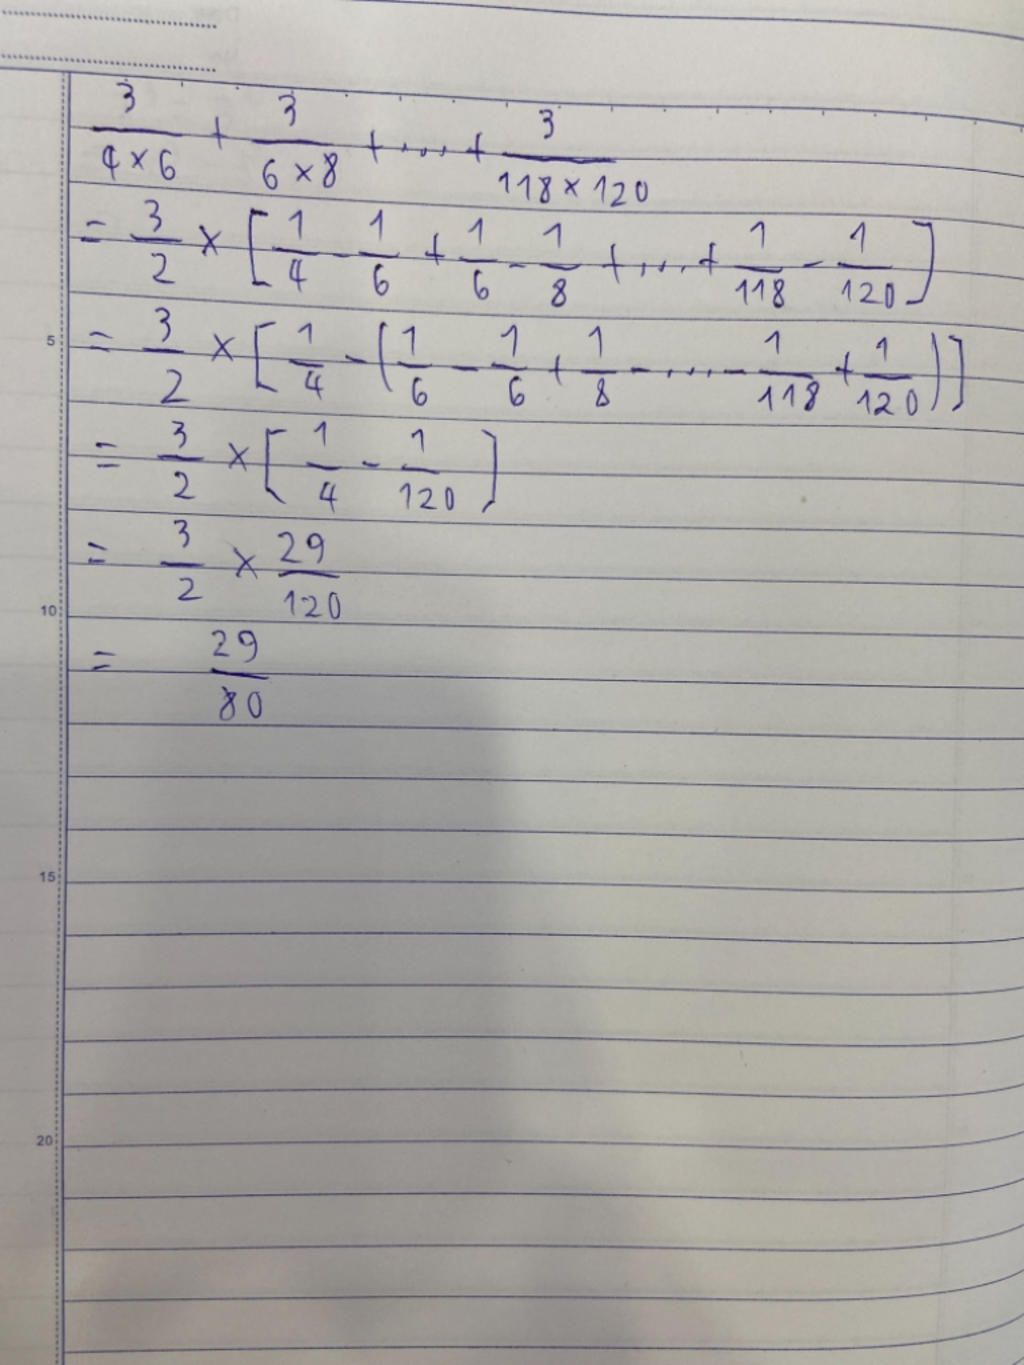 3/(4 × 6) + 3/(6 × 8) + .... + 3/(118 × 120)
= 3/2 × [1/4 - 1/6 + 1/6 - 1/8 + .... + 1/118 - 1/120]
5 = 3/2 × [1/4 - (1/6 - 1/6 + 1/8 - .... - 1/118 + 1/120)]
= 3/2 × [1/4 - 1/120]
= 3/2 × 29/120
10
= 29/80
15
20